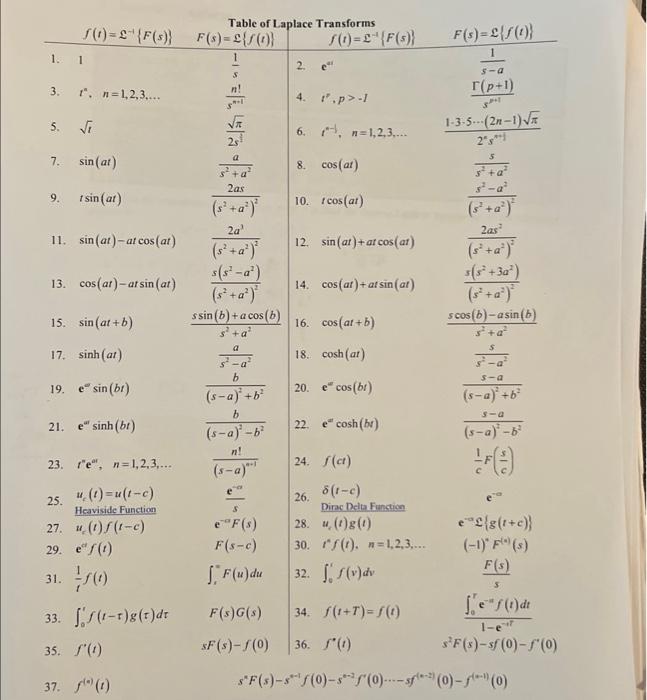 Table of Laplace Transforms
f(t) = ℒ⁻¹{F(s)}   F(s) = ℒ{f(t)}   f(t) = ℒ⁻¹{F(s)}   F(s) = ℒ{f(t)}
1. 1   1/s   2. e^(at)   1/(s-a)
3. t^n, n=1,2,3,...   n!/s^(n+1)   4. t^p, p > -1   Γ(p+1)/s^(p+1)
5. √t   √π/(2s^(3/2))   6. t^(n-1/2), n=1,2,3,...   1·3·5···(2n-1)√π/(2^n s^(n+1/2))
7. sin(at)   a/(s²+a²)   8. cos(at)   s/(s²+a²)
9. t sin(at)   2as/(s²+a²)²   10. t cos(at)   (s²-a²)/(s²+a²)²
11. sin(at)-at cos(at)   2a³/(s²+a²)²   12. sin(at)+at cos(at)   2as²/(s²+a²)²
13. cos(at)-at sin(at)   s(s²-a²)/(s²+a²)²   14. cos(at)+at sin(at)   s(s²+3a²)/(s²+a²)²
15. sin(at+b)   (s sin(b)+a cos(b))/(s²+a²)   16. cos(at+b)   (s cos(b)-a sin(b))/(s²+a²)
17. sinh(at)   a/(s²-a²)   18. cosh(at)   s/(s²-a²)
19. e^(at) sin(bt)   b/((s-a)²+b²)   20. e^(at) cos(bt)   (s-a)/((s-a)²+b²)
21. e^(at) sinh(bt)   b/((s-a)²-b²)   22. e^(at) cosh(bt)   (s-a)/((s-a)²-b²)
23. t^n e^(at), n=1,2,3,...   n!/(s-a)^(n+1)   24. f(ct)   (1/c)F(s/c)
25. u_c(t)=u(t-c)   e^(-cs)/s   26. δ(t-c)   e^(-cs)
Heaviside Function   Dirac Delta Function
27. u_c(t)f(t-c)   e^(-cs)F(s)   28. u_c(t)g(t)   e^(-cs)ℒ{g(t+c)}
29. e^(ct)f(t)   F(s-c)   30. t^n f(t), n=1,2,3,...   (-1)^n F^(n)(s)
31. (1/t)f(t)   ∫_s^∞ F(u)du   32. ∫_0^t f(v)dv   F(s)/s
33. ∫_0^t f(t-τ)g(τ)dτ   F(s)G(s)   34. f(t+T)=f(t)   ∫_0^T e^(-st)f(t)dt/(1-e^(-sT))
35. f'(t)   sF(s)-f(0)   36. f''(t)   s²F(s)-sf(0)-f'(0)
37. f^(n)(t)   s^n F(s)-s^(n-1)f(0)-s^(n-2)f'(0)···-sf^(n-2)(0)-f^(n-1)(0)